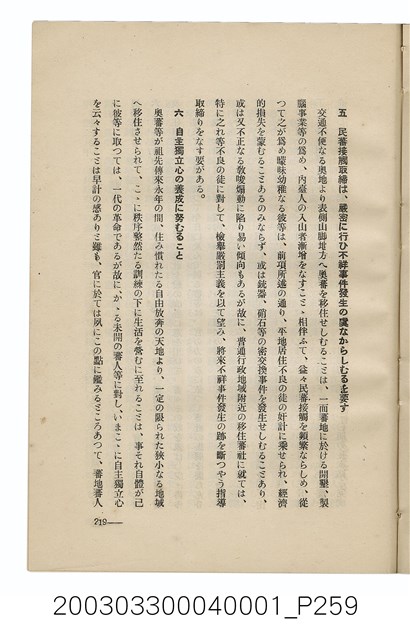 五　民蕃接觸取締は、嚴密に行ひ不祥事件發生の虞なからしむるを要す
交通不便なる奥地より表側山脚地方へ奥蕃を移住せしむることは、一面蕃地に於ける開墾、製
腦事業等の爲め、内臺人の入山者漸增をなすことゝ相伴ふて、益々民蕃接觸を頻繁ならしめ、從
つて之が爲め曚昧幼稚なる彼等は、前項所述の通り、平地居住不良の徒の奸計に乘せられ、經濟
的損失を蒙むることあるのみならず、或は銃器、硝石等の密交換事件を發生せしむることあり、
或は又不正なる敎唆煽動に陷り易い傾向もあるが故に、普通行政地域附近の移住蕃社に就ては、
特に之れ等不良の徒に對して、檢擧嚴罰主義を以て望み、將來不祥事件發生の跡を斷つやう指導
取締りをなす要がある。
六　自主獨立心の養成に努むること
奥蕃等が祖先傳來永年の間、住み慣れたる自由放奔の天地より、一定の限られた狹小なる地域
へ移住させられて、こゝに秩序整然たる訓練の下に生活を營むに至れることは、事それ自體が已
に彼等に取つては、一代の革命であるが故に、かゝる未開の蕃人等に對し、いまこゝに自主獨立心
を云々することは早計の感ありと雖も、官に於ては夙にこの點に鑑みるところあつて、蕃地蕃人
219
200303300040001_P259